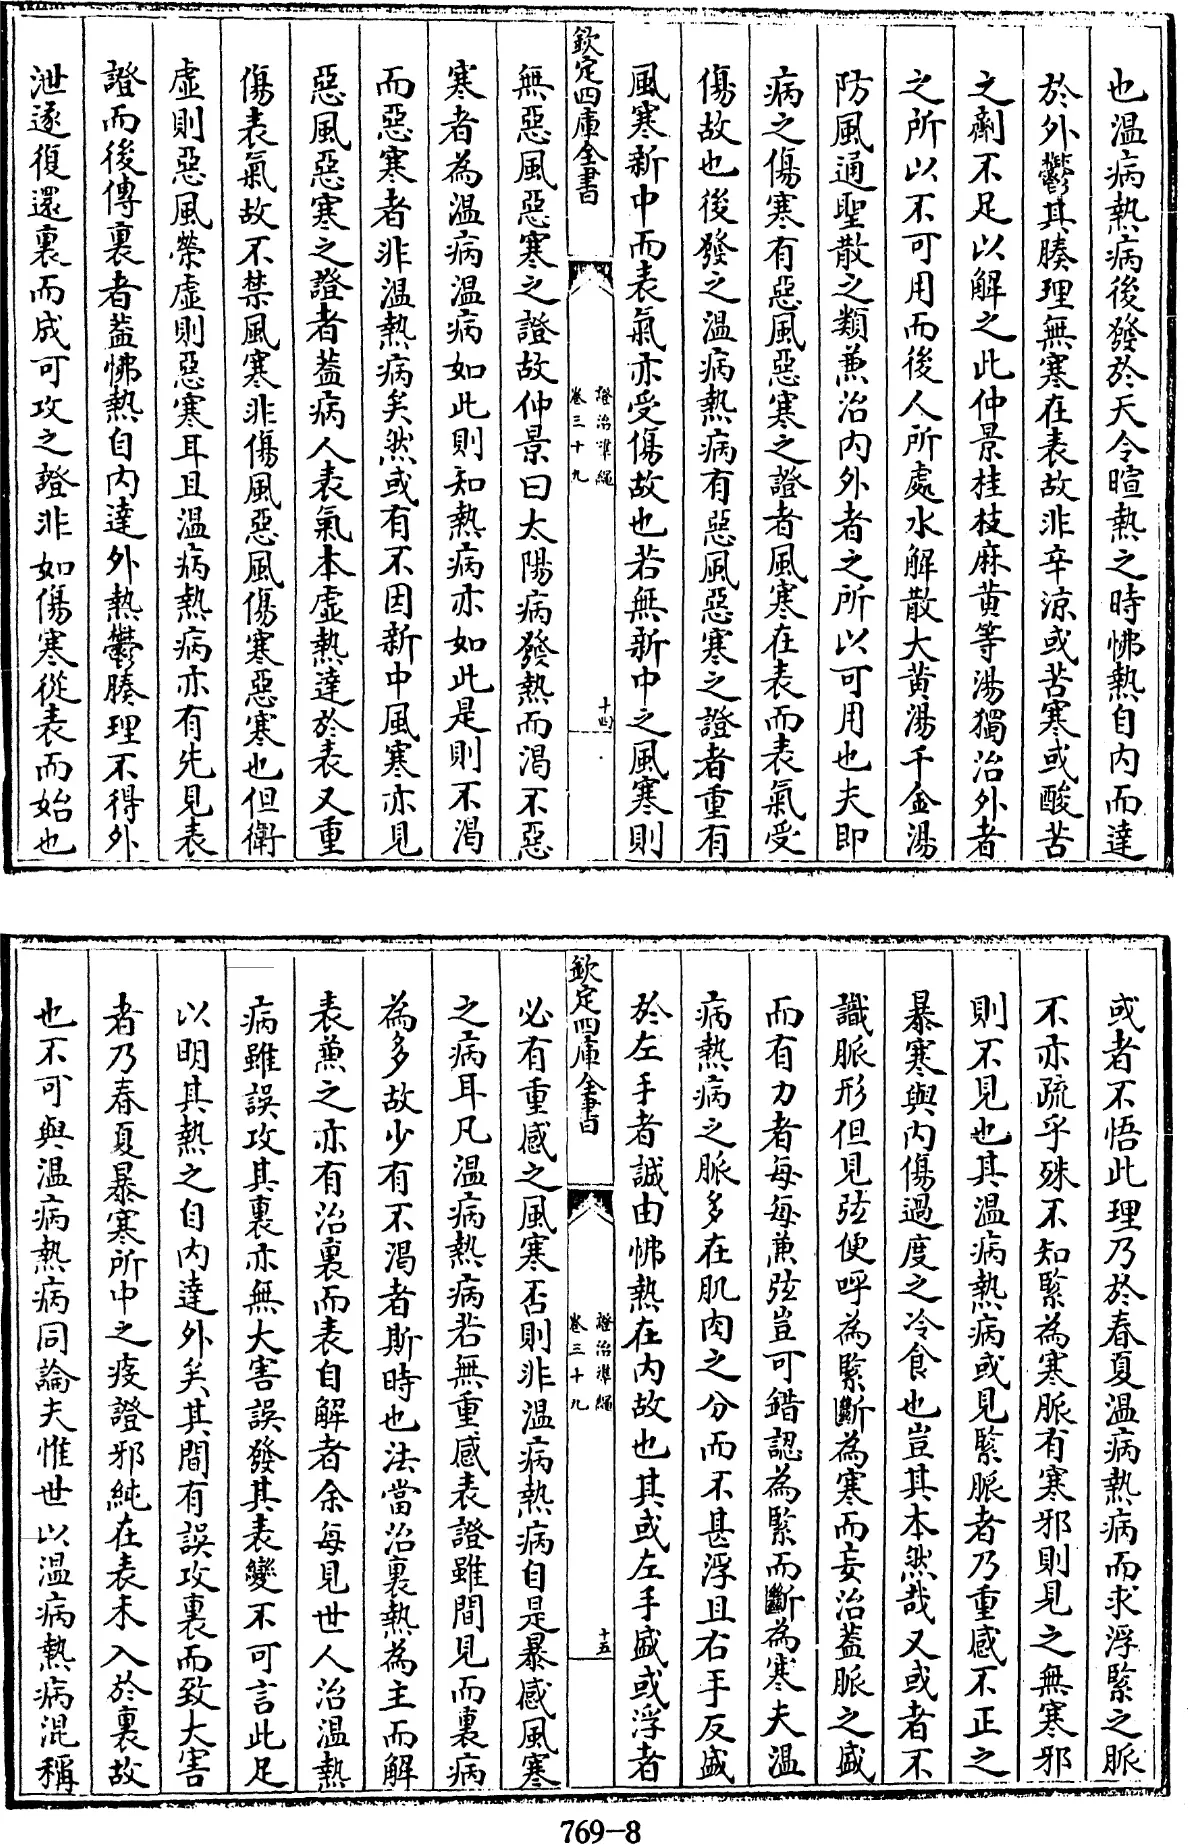 也溫病熱病後發於天令暄熱之時怫熱自内而達
於外鬱其腠理無寒在表故非辛涼或苦寒或酸苦
之劑不足以解之此仲景桂枝麻黄等湯獨治外者
之所以不可用而後人所處水解散大黄湯千金湯
防風通聖散之類兼治内外者之所以可用也夫即
病之傷寒有惡風惡寒之證者風寒在表而表氣受
傷故也後發之溫病熱病有惡風惡寒之證者重有
風寒新中而表氣亦受傷故也若無新中之風寒則
欽定四庫全書
證治準繩
卷三十九
十四
無惡風惡寒之證故仲景曰太陽病發熱而渇不惡
寒者為溫病溫病如此則知熱病亦如此是則不渇
而惡寒者非溫熱病矣然或有不因新中風寒亦見
惡風惡寒之證者葢病人表氣本虛熱達於表又重
傷表氣故不禁風寒非傷風惡風傷寒惡寒也但衛
虛則惡風榮虛則惡寒耳且溫病熱病亦有先見表
證而後傳裏者葢怫熱自内達外熱鬱腠理不得外
泄遂復還裏而成可攻之證非如傷寒從表而始也
或者不悟此理乃於春夏溫病熱病而求浮緊之脈
不亦疏乎殊不知緊為寒脈有寒邪則見之無寒邪
則不見也其溫病熱病或見緊脈者乃重感不正之
暴寒與内傷過度之冷食也豈其本然哉又或者不
識脈形但見弦便呼為緊斷為寒而妄治葢脈之盛
而有力者每每兼弦豈可錯認為緊而斷為寒夫溫
病熱病之脈多在肌肉之分而不甚浮且右手反盛
於左手者誠由怫熱在内故也其或左手盛或浮者
欽定四庫全書
證治準繩
卷三十九
十五
必有重感之風寒否則非溫病熱病自是暴感風寒
之病耳凡溫病熱病若無重感表證雖間見而裏病
為多故少有不渇者斯時也法當治裏熱為主而解
表兼之亦有治裏而表自解者余每見世人治溫熱
病雖誤攻其裏亦無大害誤發其表變不可言此足
以明其熱之自内達外矣其間有誤攻裏而致大害
者乃春夏暴寒所中之疫證邪純在表未入於裏故
也不可與溫病熱病同論夫惟世以溫病熱病混稱
769-8